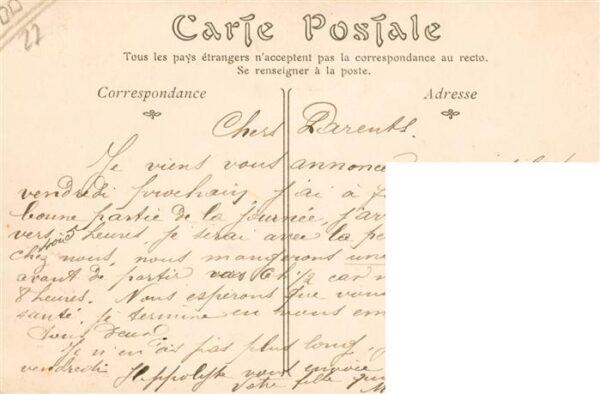 27
Carte Postale
Tous les pays étrangers n'acceptent pas la correspondance au recto.
Se renseigner à la poste.
Correspondance
Adresse
Chers Parents.
Je viens vous annonce
vendredi prochain, j'ai à
bonne partie de la journée, j'ar
vers heures, je serai avec la pe
chez nous, nous mangerons une
avant de partir car
8 heures. Nous espérons que vous
santé, je termine en vous em
tous deux
Je n'en dis pas plus long,
vendredi Hippolyte vous envoie
Votre fille qui